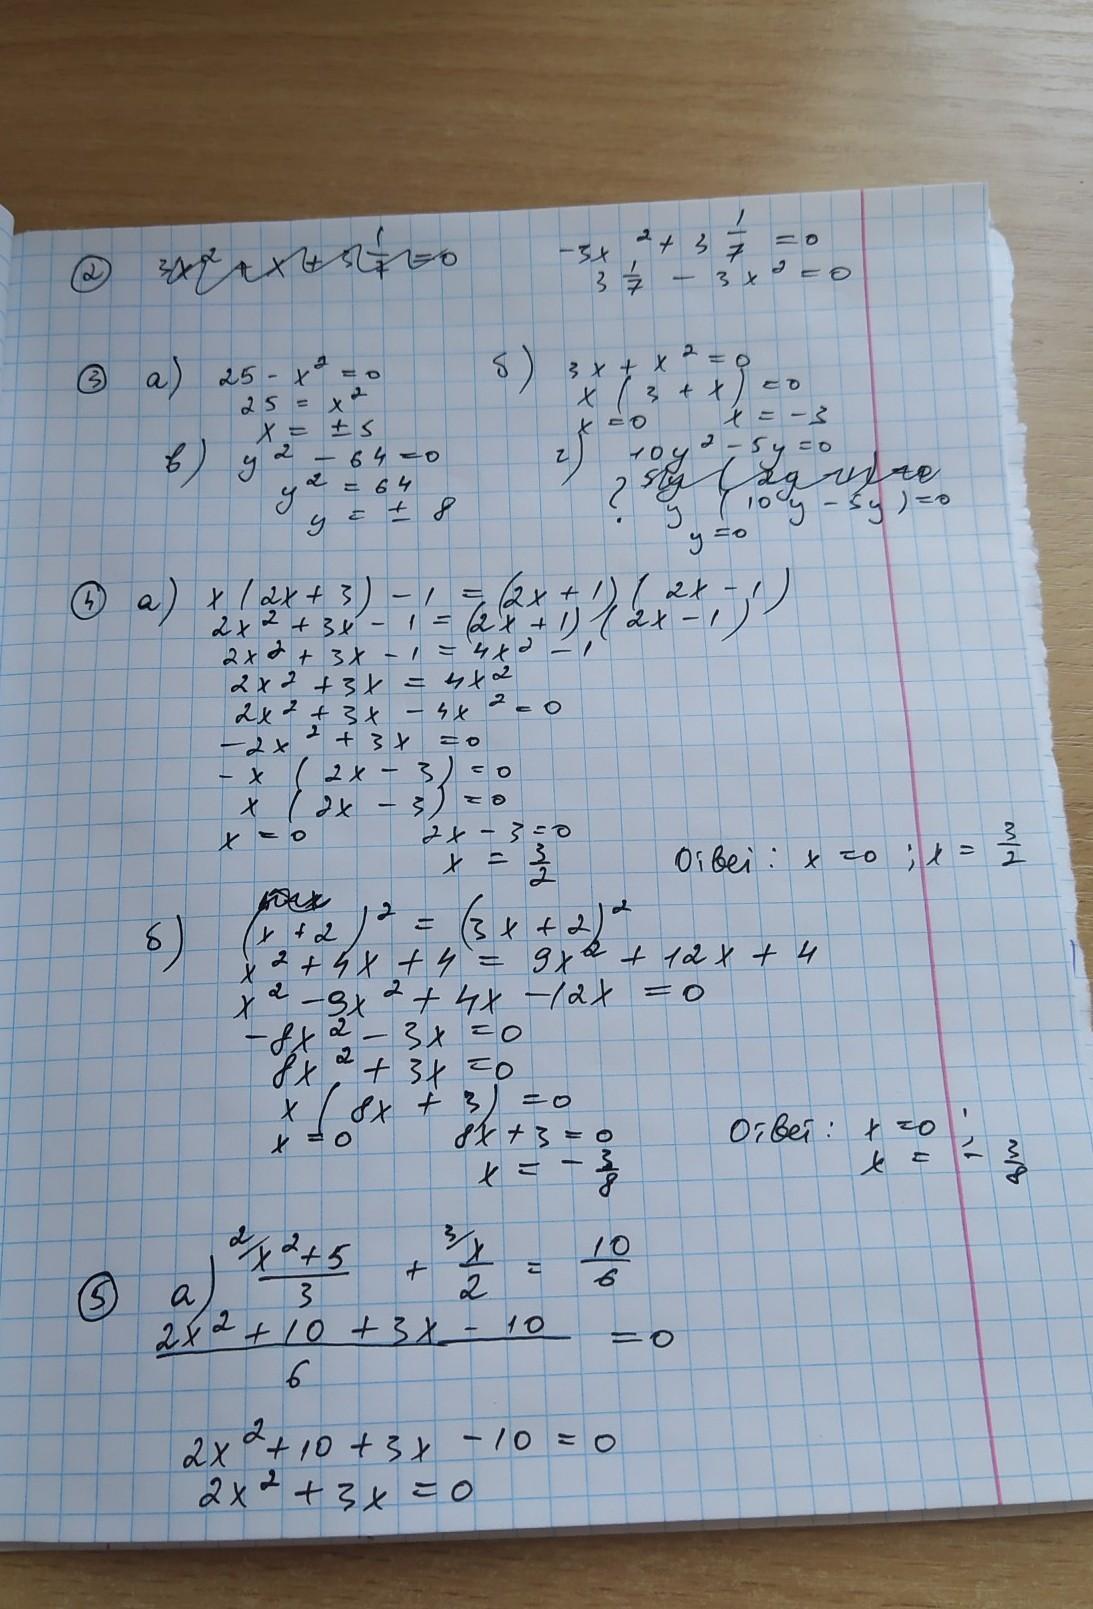 ② -3x² + 3 1/7 = 0
3 1/7 - 3x² = 0
③ а) 25 - x² = 0
25 = x²
x = ± 5
б) 3x + x² = 0
x (3 + x) = 0
x = 0 x = -3
в) y² - 64 = 0
y² = 64
y = ± 8
г) 10y² - 5y = 0
? y (10y - 5y) = 0
y = 0
④ а) x (2x + 3) - 1 = (2x + 1) (2x - 1)
2x² + 3x - 1 = (2x + 1) (2x - 1)
2x² + 3x - 1 = 4x² - 1
2x² + 3x = 4x²
2x² + 3x - 4x² = 0
-2x² + 3x = 0
-x (2x - 3) = 0
x (2x - 3) = 0
x = 0 2x - 3 = 0
x = 3/2 Ответ: x = 0 ; x = 3/2
б) (x + 2)² = (3x + 2)²
x² + 4x + 4 = 9x² + 12x + 4
x² - 9x² + 4x - 12x = 0
-8x² - 3x = 0
8x² + 3x = 0
x (8x + 3) = 0
x = 0 8x + 3 = 0
x = - 3/8
Ответ: x = 0 ;
x = - 3/8
⑤ а) 2/ (x² + 5)/3 + 3/ x/2 = 10/6
(2x² + 10 + 3x - 10)/6 = 0
2x² + 10 + 3x - 10 = 0
2x² + 3x = 0